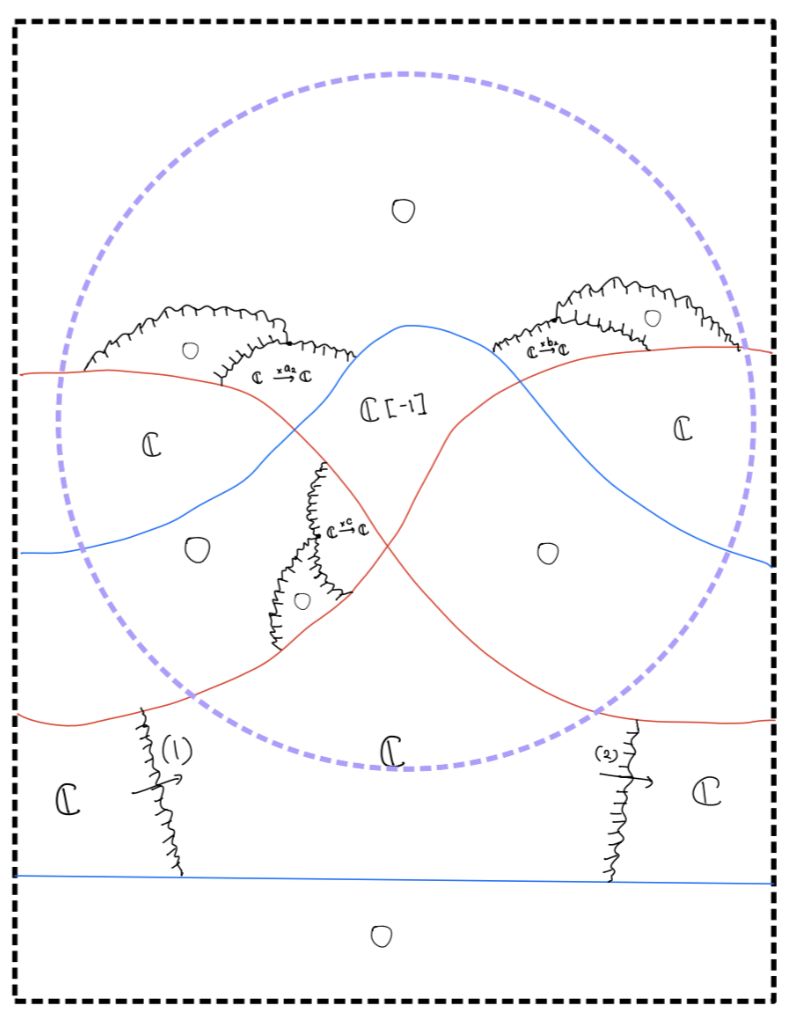 0
0
0
ℂ →^{×a₂} ℂ
ℂ →^{×b₂} ℂ
ℂ[-1]
ℂ
ℂ
ℂ →^{×c} ℂ
0
0
0
(1)
ℂ
(2)
ℂ
ℂ
0